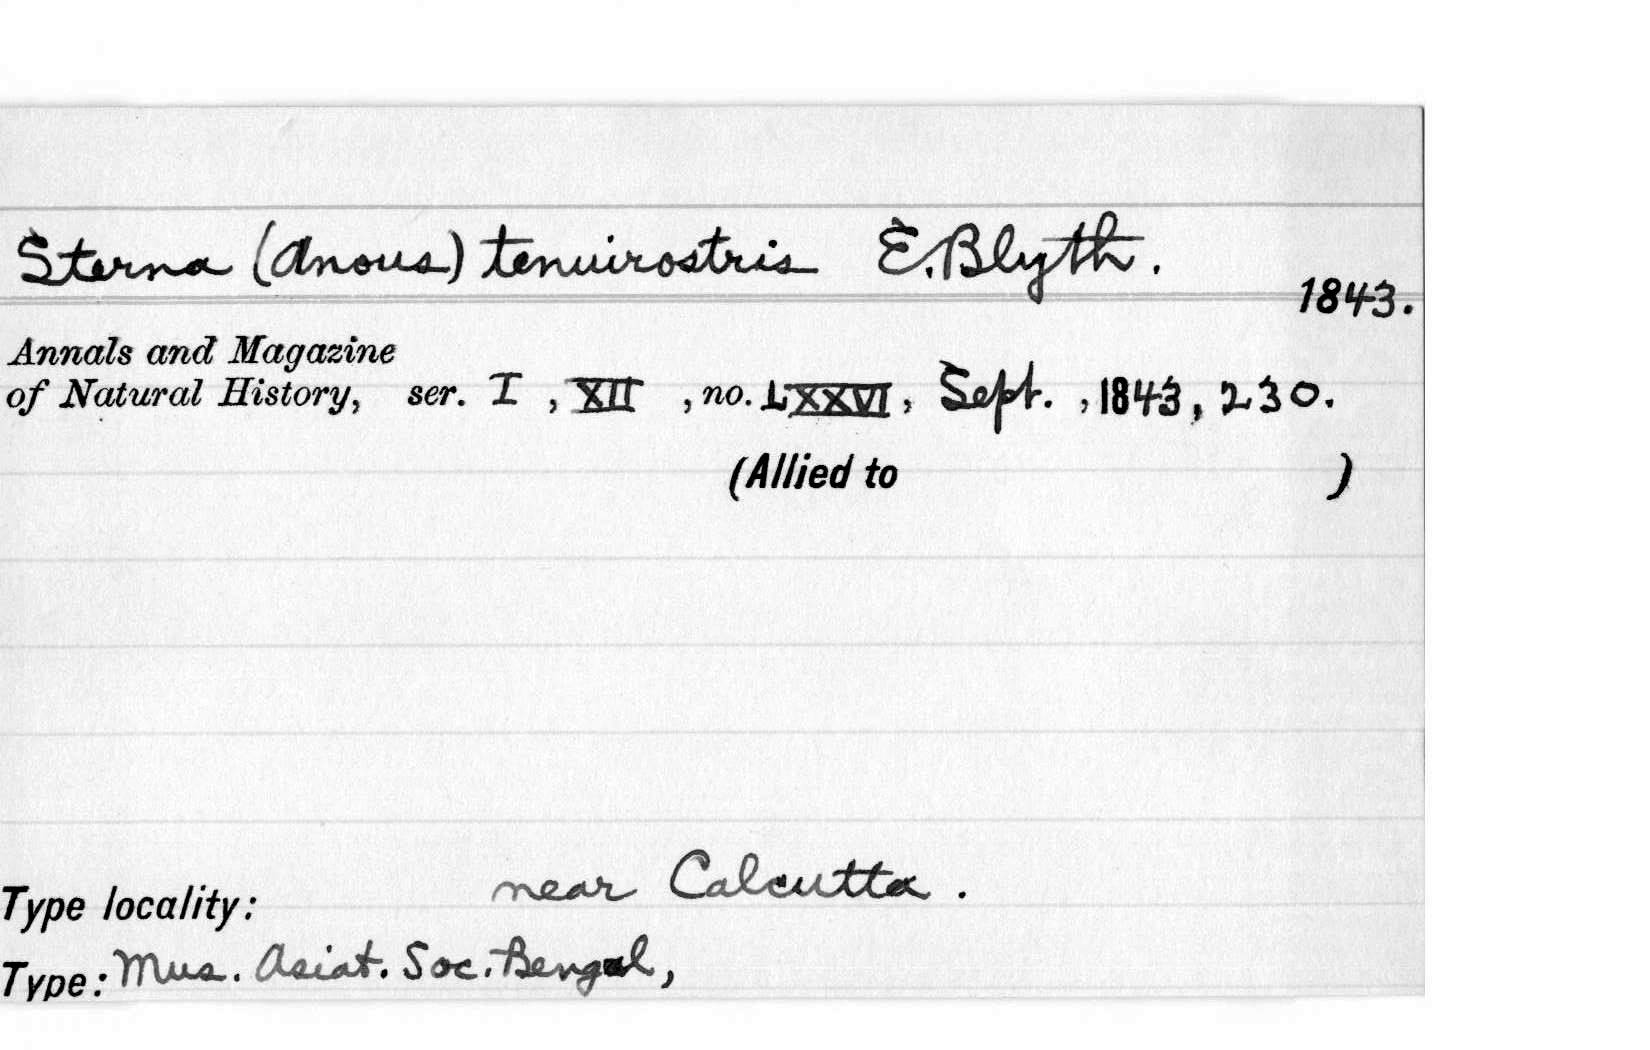 Sterna (Anous) tenuirostris E. Blyth.
1843.
Annals and Magazine
of Natural History, ser. I, XII, no. LXXVI, Sept., 1843, 230.
(Allied to )
Type locality: near Calcutta.
Type: Mus. Asiat. Soc. Bengal,